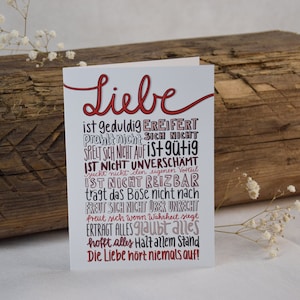 Liebe
ist geduldig EREIFERT
prahlt nicht SICH NICHT
SPIELT SICH NICHT AUF ist gütig
IST NICHT UNVERSCHAMT
sucht nicht den eigenen Vorteil
IST NICHT REIZBAR
trägt das Böse nicht nach
FREUT SICH NICHT ÜBER UNRECHT
freut sich wenn Wahrheit siegt
ERTRÄGT ALLES glaubt alles
hofft alles Hält allem Stand
Die Liebe hört niemals auf!